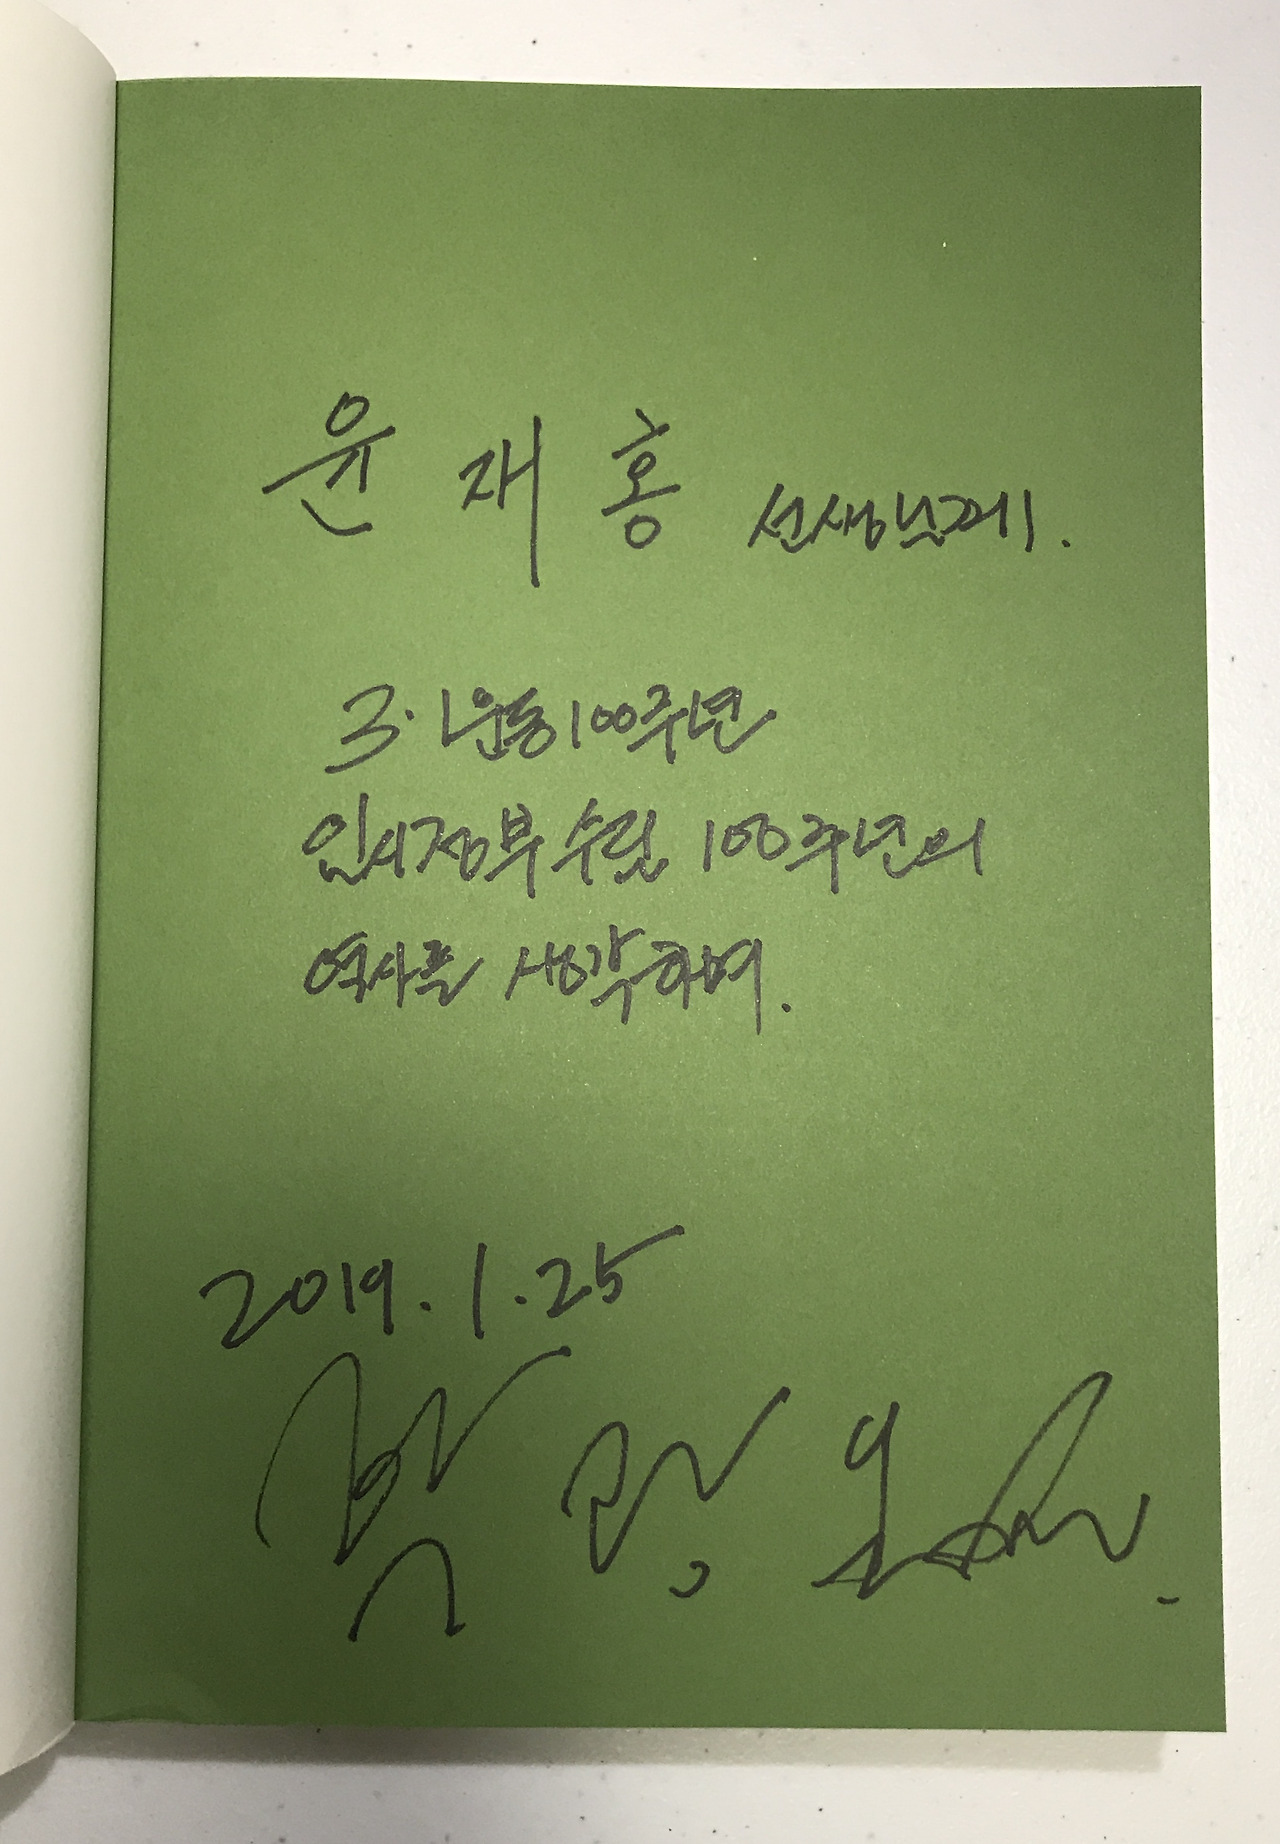 윤재홍 선생님께.
3·1운동 100주년
임시정부 수립 100주년의
역사를 생각하며.
2019. 1. 25